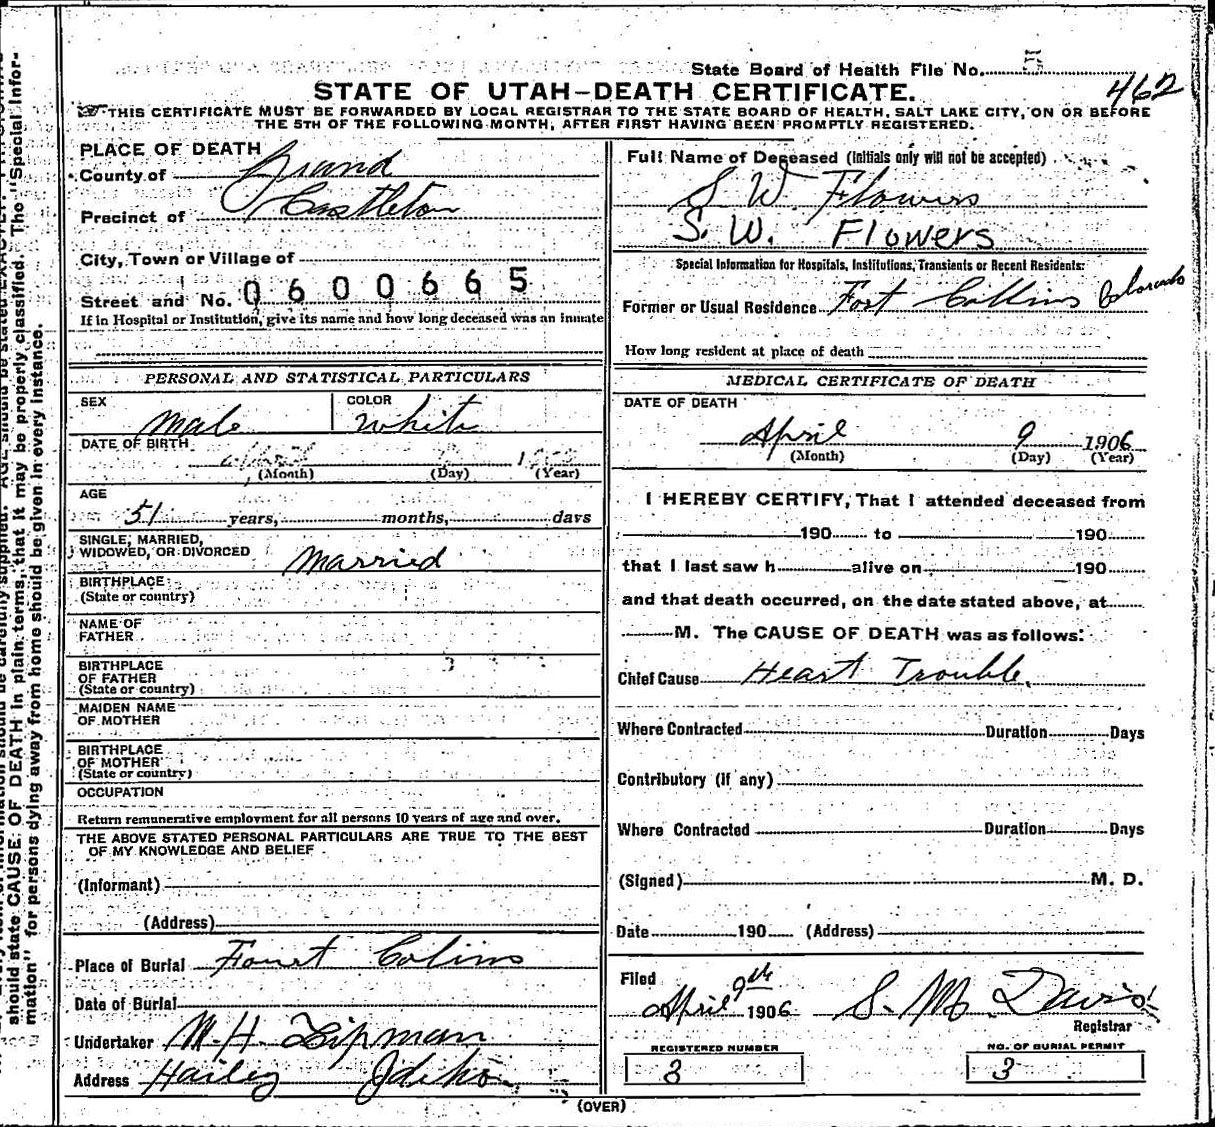 State Board of Health File No. 5
462
STATE OF UTAH—DEATH CERTIFICATE.
THIS CERTIFICATE MUST BE FORWARDED BY LOCAL REGISTRAR TO THE STATE BOARD OF HEALTH, SALT LAKE CITY, ON OR BEFORE
THE 5TH OF THE FOLLOWING MONTH, AFTER FIRST HAVING BEEN PROMPTLY REGISTERED.
PLACE OF DEATH
County of Grand
Precinct of Castleton
City, Town or Village of
Street and No. 0600665
If in Hospital or Institution, give its name and how long deceased was an inmate
PERSONAL AND STATISTICAL PARTICULARS
SEX Male COLOR White
DATE OF BIRTH
(Month) (Day) (Year)
AGE
51 years, months, days
SINGLE, MARRIED,
WIDOWED, OR DIVORCED Married
BIRTHPLACE
(State or country)
NAME OF
FATHER
BIRTHPLACE
OF FATHER
(State or country)
MAIDEN NAME
OF MOTHER
BIRTHPLACE
OF MOTHER
(State or country)
OCCUPATION
Return remunerative employment for all persons 10 years of age and over.
THE ABOVE STATED PERSONAL PARTICULARS ARE TRUE TO THE BEST
OF MY KNOWLEDGE AND BELIEF
(Informant)
(Address)
Place of Burial Fourt Colins
Date of Burial
Undertaker M. H. Lipman
Address Hailey Ideho
Full Name of Deceased (Initials only will not be accepted)
S W. Flowers
S. W. Flowers
Special Information for Hospitals, Institutions, Transients or Recent Residents:
Former or Usual Residence Fort Collins Colorado
How long resident at place of death
MEDICAL CERTIFICATE OF DEATH
DATE OF DEATH
April 9 1906
(Month) (Day) (Year)
I HEREBY CERTIFY, That I attended deceased from
190 to 190
that I last saw h alive on 190
and that death occurred, on the date stated above, at
M. The CAUSE OF DEATH was as follows:
Chief Cause Heart Trouble.
Where Contracted Duration Days
Contributory (if any)
Where Contracted Duration Days
(Signed) M. D.
Date 190 (Address)
Filed
April 9th 1906 S. M. Davis
Registrar
REGISTERED NUMBER
3
NO. OF BURIAL PERMIT
3
(OVER)
should state CAUSE OF DEATH in plain terms, that it may be properly classified. The "Special Infor-
mation" for persons dying away from home should be given in every instance.